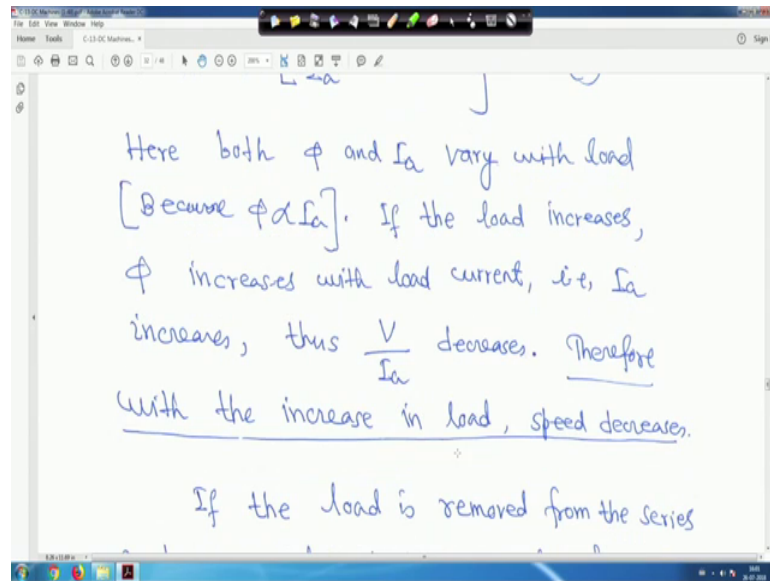 File Edit View Window Help
Home Tools C-13-DC Machines... × Sign
32 / 48
Here both φ and Ia vary with load
[Because φ α Ia]. If the load increases,
φ increases with load current, i.e, Ia
increases, thus V/Ia decreases. Therefore
with the increase in load, speed decreases.
If the load is removed from the series